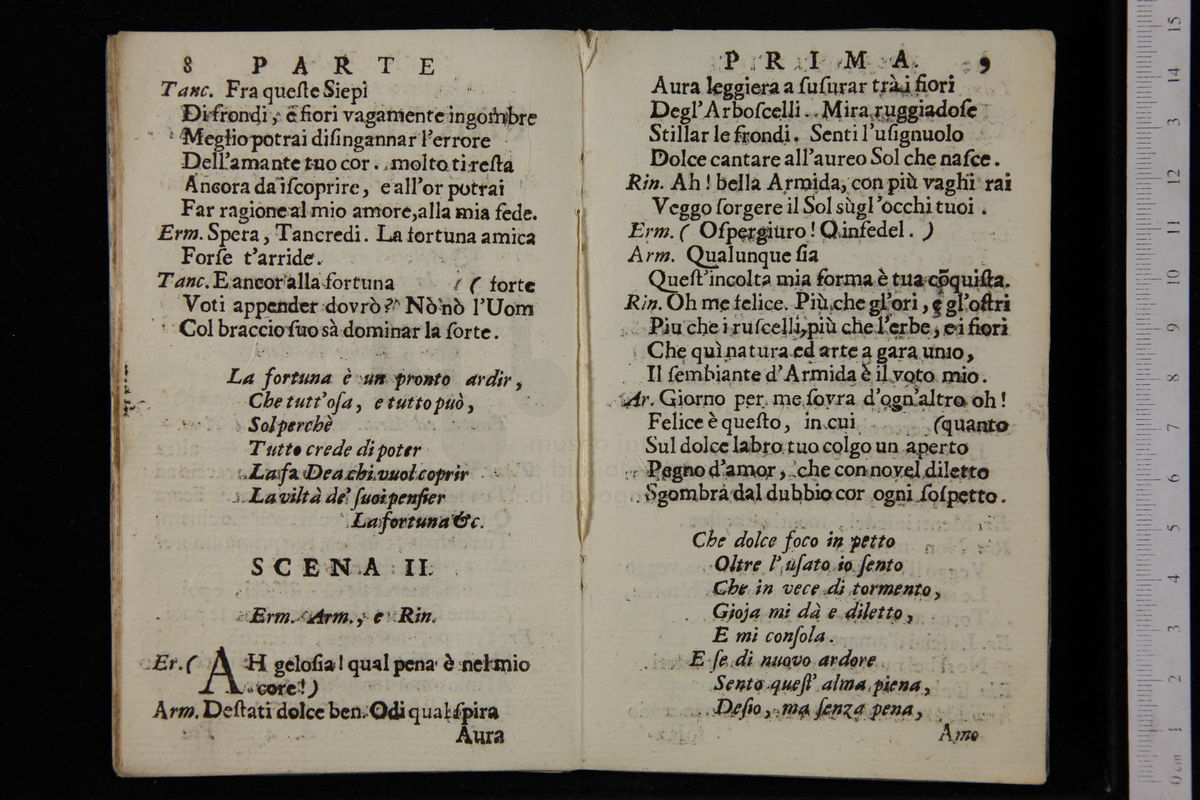 8 PARTE
Tanc. Fra queſte Siepi
Di frondi, e fiori vagamente ingombre
Meglio potrai diſingannar l'errore
Dell'amante tuo cor. molto ti reſta
Ancora da iſcoprire, e all'or potrai
Far ragione al mio amore, alla mia fede.
Erm. Spera, Tancredi. La fortuna amica
Forſe t'arride.
Tanc. E ancor alla fortuna ( forte
Voti appender dovrò? Nò nò l'Uom
Col braccio ſuo sà dominar la ſorte.
La fortuna è un pronto ardir,
Che tutt'oſa, e tutto può,
Sol perchè
Tutto crede di poter
La fa Dea chi vuol coprir
La viltà de' ſuoi penſier
La fortuna &c.
SCENA II.
Erm. Arm., e Rin.
Er. ( AH geloſia! qual pena è nel mio
core! )
Arm. Deſtati dolce ben. Odi qual ſpira
Aura
PRIMA. 9
Aura leggiera a ſuſurar trà i fiori
Degl'Arboſcelli. Mira ruggiadoſe
Stillar le frondi. Senti l'uſignuolo
Dolce cantare all'aureo Sol che naſce.
Rin. Ah! bella Armida, con più vaghi rai
Veggo ſorgere il Sol sùgl'occhi tuoi.
Erm. ( O ſpergiuro! O infedel. )
Arm. Qualunque ſia
Queſt'incolta mia forma è tua cõquiſta.
Rin. Oh me felice. Più che gl'ori, e gl'oſtri
Piu che i ruſcelli, più che l'erbe, e i fiori
Che quì natura ed arte a gara unio,
Il ſembiante d'Armida è il voto mio.
Ar. Giorno per me ſovra d'ogn'altro oh!
Felice è queſto, in cui (quanto
Sul dolce labro tuo colgo un aperto
Pegno d'amor, che con novel diletto
Sgombra dal dubbio cor ogni ſoſpetto.
Che dolce foco in petto
Oltre l'uſato io ſento
Che in vece di tormento,
Gioja mi dà e diletto,
E mi conſola.
E ſe di nuovo ardore
Sento queſt' alma piena,
Deſio, ma ſenza pena,
Amo